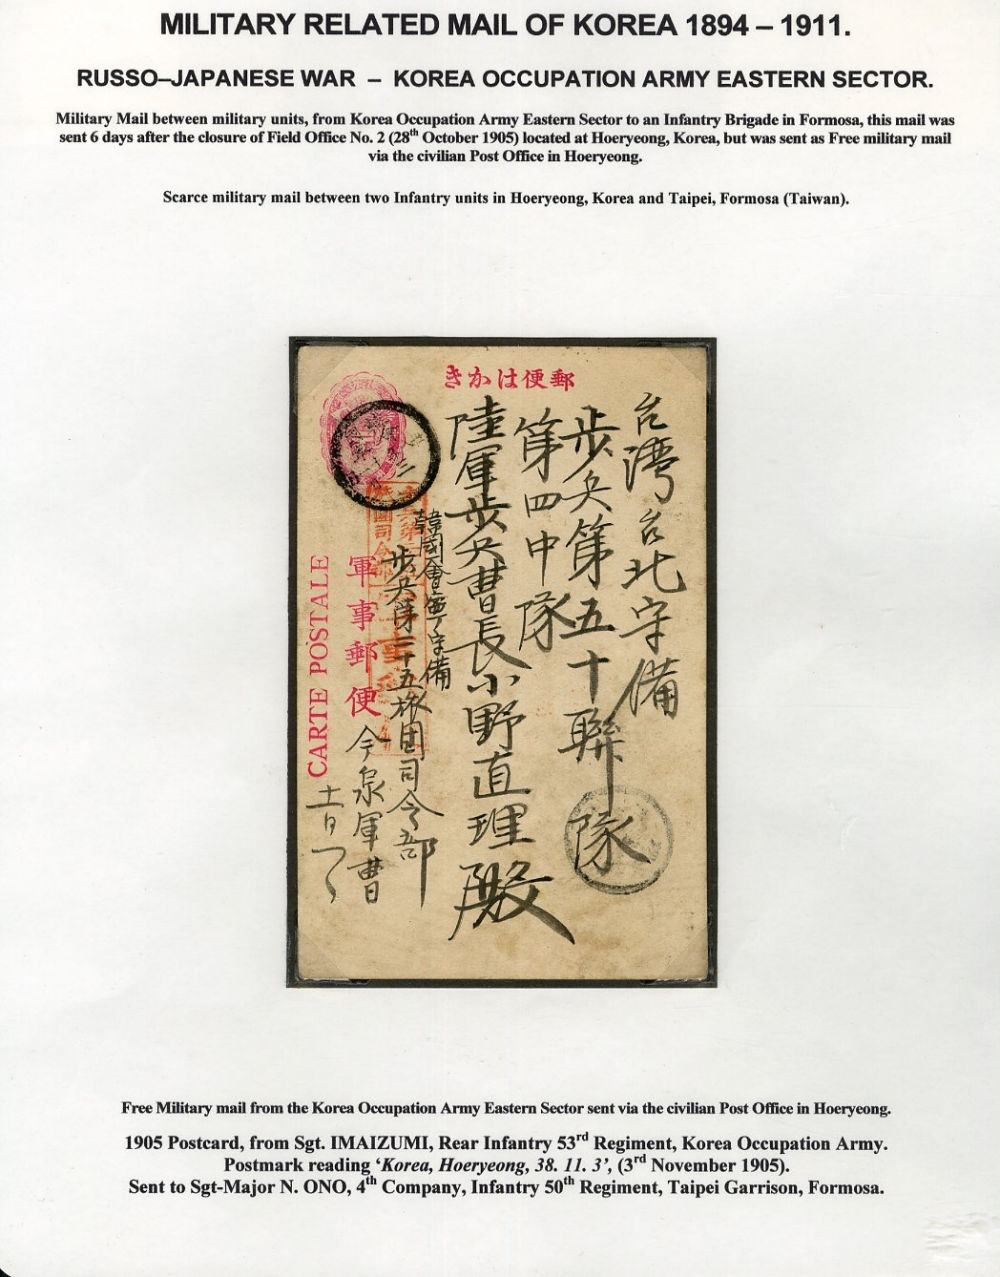 MILITARY RELATED MAIL OF KOREA 1894 – 1911.
RUSSO–JAPANESE WAR – KOREA OCCUPATION ARMY EASTERN SECTOR.
Military Mail between military units, from Korea Occupation Army Eastern Sector to an Infantry Brigade in Formosa, this mail was
sent 6 days after the closure of Field Office No. 2 (28th October 1905) located at Hoeryeong, Korea, but was sent as Free military mail
via the civilian Post Office in Hoeryeong.
Scarce military mail between two Infantry units in Hoeryeong, Korea and Taipei, Formosa (Taiwan).
きかは便郵
台湾台北守備
歩兵第五十聯隊
第四中隊
陸軍歩兵曹長小野直理殿
韓國會寧守備
歩兵第三十五旅団司令部
軍事郵便
今泉軍曹
CARTE POSTALE
Free Military mail from the Korea Occupation Army Eastern Sector sent via the civilian Post Office in Hoeryeong.
1905 Postcard, from Sgt. IMAIZUMI, Rear Infantry 53rd Regiment, Korea Occupation Army.
Postmark reading ‘Korea, Hoeryeong, 38. 11. 3’, (3rd November 1905).
Sent to Sgt-Major N. ONO, 4th Company, Infantry 50th Regiment, Taipei Garrison, Formosa.